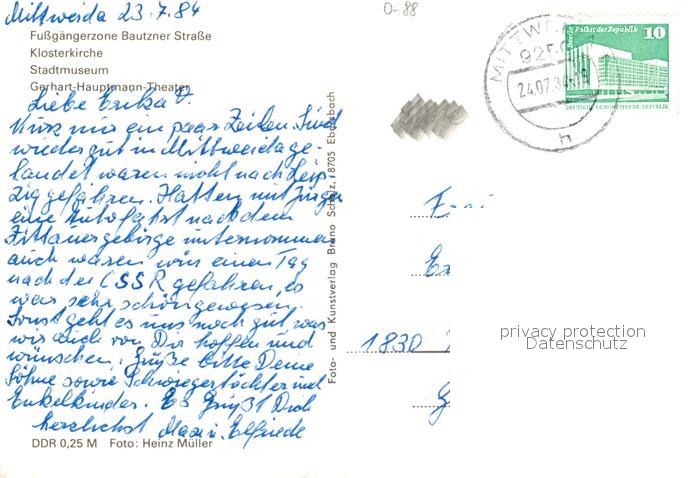 Mittweida 23.7.84
Fußgängerzone Bautzner Straße
Klosterkirche
Stadtmuseum
Gerhart-Hauptmann-Theater
Liebe Erika
Kurz nur ein paar Zeilen. Sind
wieder gut in Mittweida ge-
landet waren nicht nach Leip-
zig gefahren. Hatten mit Jürgen
eine Autofahrt nach dem
Zittauergebirge unternommen
auch waren wir einen Tag
nach der CSSR gefahren, es
war sehr schön gewesen.
Sonst geht es uns noch gut was
wir auch von Dir hoffen und
wünschen. Grüße bitte Deine
Söhne sowie Schwiegertöchter und
Enkelkinder. Es Grüßt Dich
herzlichst Max u. Elfriede
DDR 0,25 M Foto: Heinz Müller
Foto- und Kunstverlag Bruno Scholz, 8705 Ebersbach
0-88
MITTWE
925
24.07.84
h
Berlin Palast der Republik
10
DEUTSCHE DEMOKRATISCHE REPUBLIK
1830
privacy protection
Datenschutz